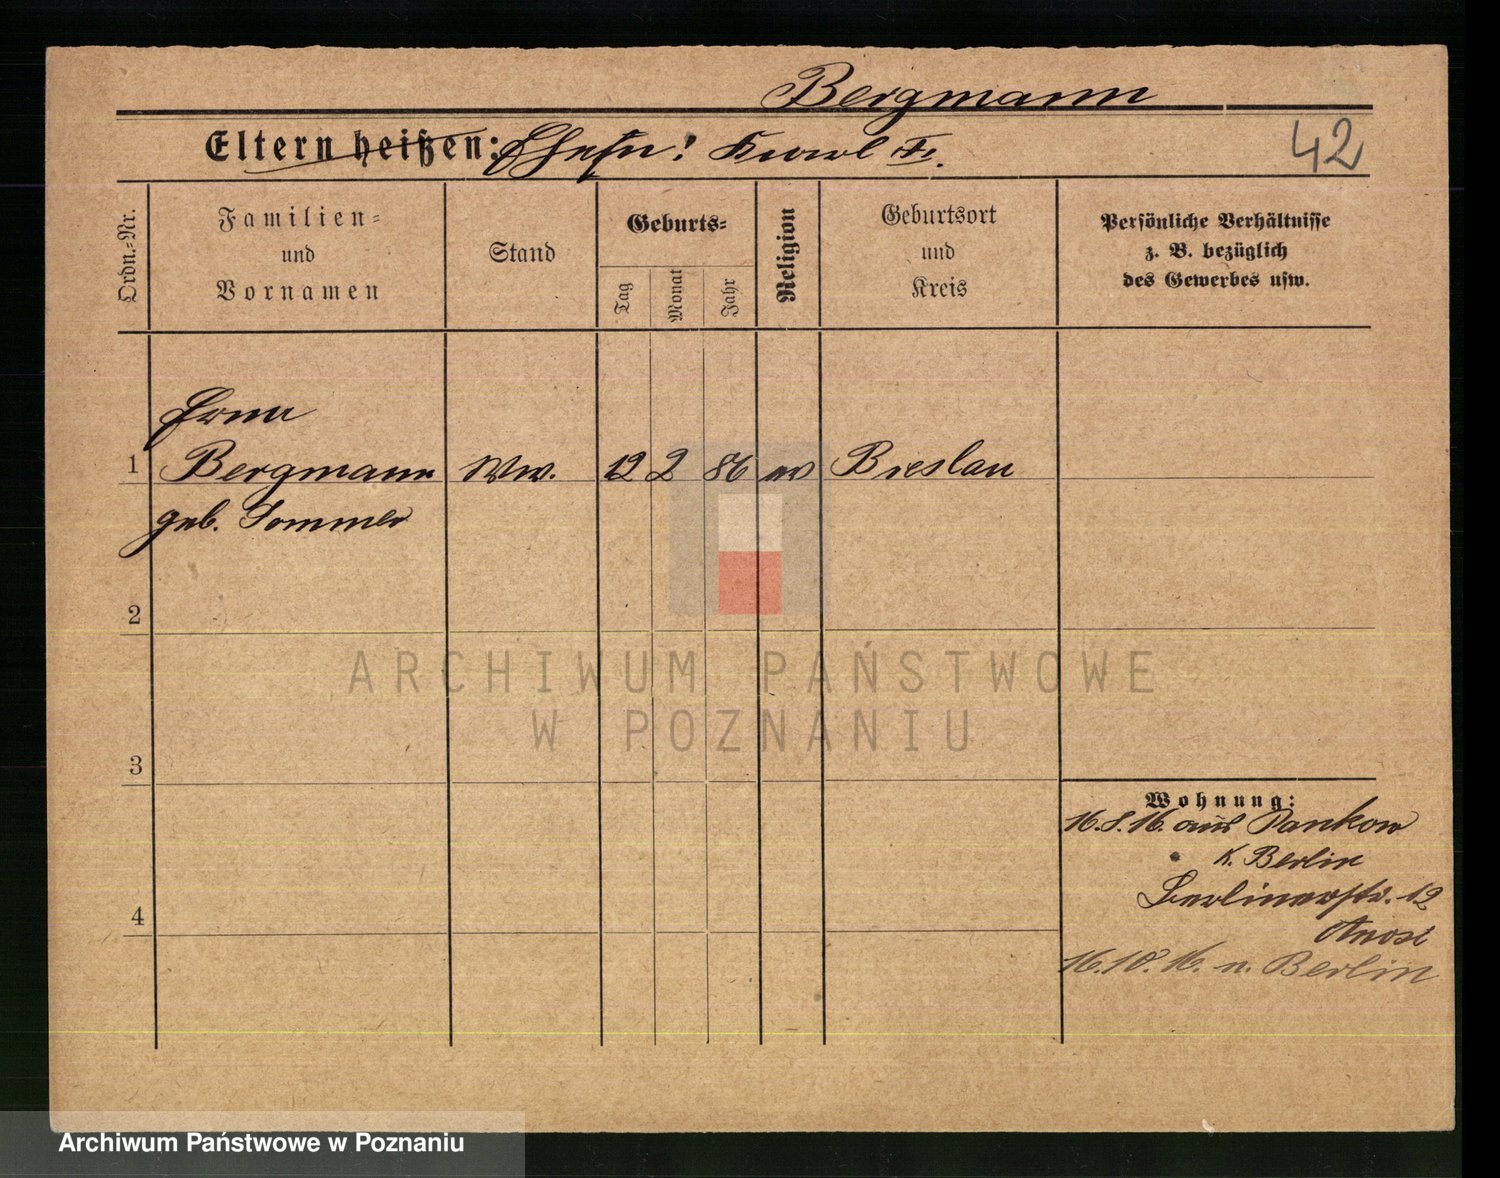 Bergmann
Eltern heißen: Ehefr: Karl
42
Ordn.-Nr.
Familien-
und
Vornamen
Stand
Geburts-
Tag
Monat
Jahr
Religion
Geburtsort
und
Kreis
Persönliche Verhältnisse
z. B. bezüglich
des Gewerbes usw.
Erna
1 Bergmann Ww. 12 2 86 ev Breslau
geb. Sommer
2
3
4
Wohnung:
16.8.16. aus Pankow
K. Berlin
Berlinerstr. 12
16.10.16. n. Berlin
ARCHIWUM PAŃSTWOWE
W POZNANIU
Archiwum Państwowe w Poznaniu